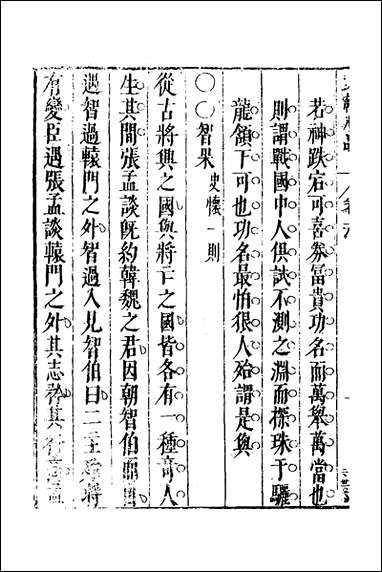 若神跌宕可喜芻富貴功名而萬舉萬當也
則謂戰國中人俱試不測之淵而探珠于驪
龍頷下可也功名最怕很人殆謂是與
〇〇智果 史懷一則
從古將興之國與將亡之國皆各有一種奇人
生其間張孟談旣約韓魏之君因朝智伯而出
遇智過轅門之外智過入見智伯曰二主殆將
有變臣遇張孟談轅門之外其志矜其行高